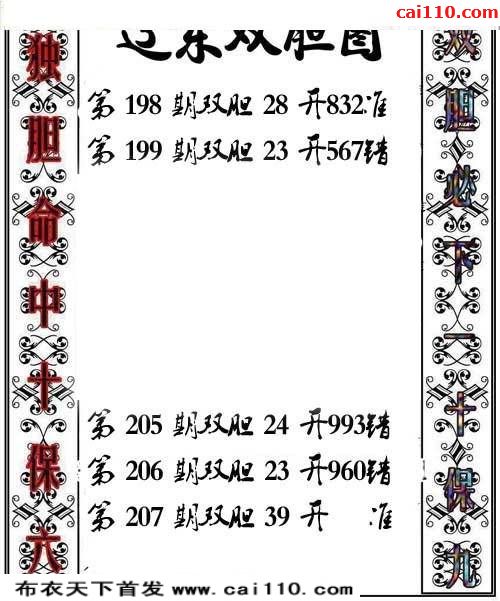 cai110.com
辽东双胆图
第 198 期双胆 28 开832准
第 199 期双胆 23 开567错
第 205 期双胆 24 开993错
第 206 期双胆 23 开960错
第 207 期双胆 39 开 准
独胆命中十保六
双胆必下一十保九
布衣天下首发 www.cai110.com